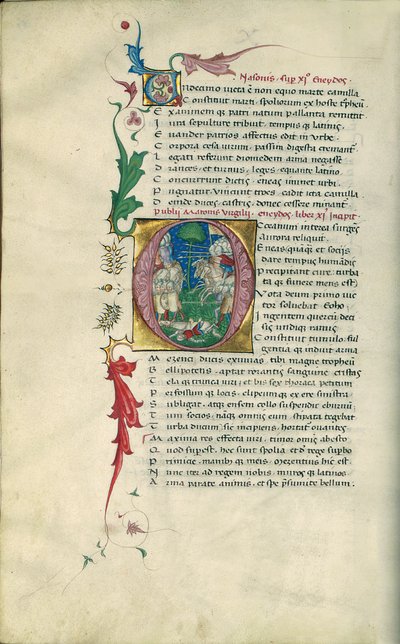 Nasonis . sup͛ . xi⁰ . Eneydos .
Vndecimo victa ẽ non equo marte camilla
Constituit marti . spoliorum ex hoste tpheũ .
Exanimem qz patri natum pallanta remittit
Iura sepulture tribuit . tempus qz latinis .
Euander patrios affectus edit in vrbe .
Corpora cesa virum . passim digesta cremant᷑
Legati referunt diomedem arma negasse
Drances . et turnus . leges . equante latino
Concurrunt dictis . eneas iminet urbi .
Pugnatur . vincunt troes . cadit icta camilla .
Deinde duces . castris . donec cessere minant᷑
Publii Maronis Virgilii . eneydos . liber xi⁹ incipit .
Oceanum interea surgẽs
aurora reliquit .
Eneas quamqz et socijs
dare tempus humãdis
Precipitant cure . turba
ta qz funere mens est
Vota deum primo vic
tor soluebat Eoho
Ingentem quercũ deci
sis undiqz ramis
Constituit tumulo . ful
gentia qz induit arma
Mezenci ducis exuuias . tibi magne tropheũ
Bellipotens . aptat rorantis sanguine cristas
Tela qz trunca viri . et bis sex thoraca petitum
Perfossum qz locis . clipeum qz ex ere sinistra
Subligat . atqz ensem collo suspendit eburnũ .
Tum socios . nãqz omnis eum stipata tegebat
Turba ducum sic incipiens . hortat᷑ ouantes .
Maxima res effecta viri . timor omis abesto
Quod supest . hec sunt spolia . et d rege supbo
Primicie . manib⁹ qz meis . Mezentius hic est .
Nunc iter ad regem nobis . muros qz latinos
Arma parate animis . et spe psumite bellum .